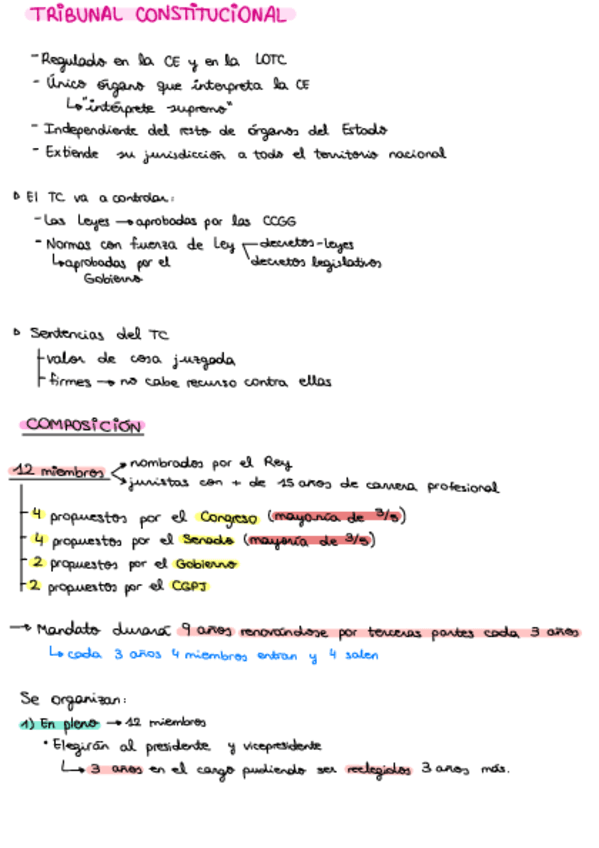 TRIBUNAL CONSTITUCIONAL
- Regulado en la CE y en la LOTC
- Único órgano que interpreta la CE
↳ "intérprete supremo"
- Independiente del resto de órganos del Estado
- Extiende su jurisdicción a todo el territorio nacional
▷ El TC va a controlar:
- Las Leyes → aprobadas por las CCGG
- Normas con fuerza de Ley decretos-leyes
↳ aprobadas por el decretos legislativos
Gobierno
▷ Sentencias del TC
valor de cosa juzgada
firmes → no cabe recurso contra ellas
COMPOSICIÓN
12 miembros nombrados por el Rey
juristas con + de 15 años de carrera profesional
4 propuestos por el Congreso (mayoría de 3/5)
4 propuestos por el Senado (mayoría de 3/5)
2 propuestos por el Gobierno
2 propuestos por el CGPJ
→ Mandato durará 9 años renovándose por terceras partes cada 3 años
↳ cada 3 años 4 miembros entran y 4 salen
Se organizan:
1) En pleno → 12 miembros
• Elegirán al presidente y vicepresidente
↳ 3 años en el cargo pudiendo ser reelegidos 3 años más.